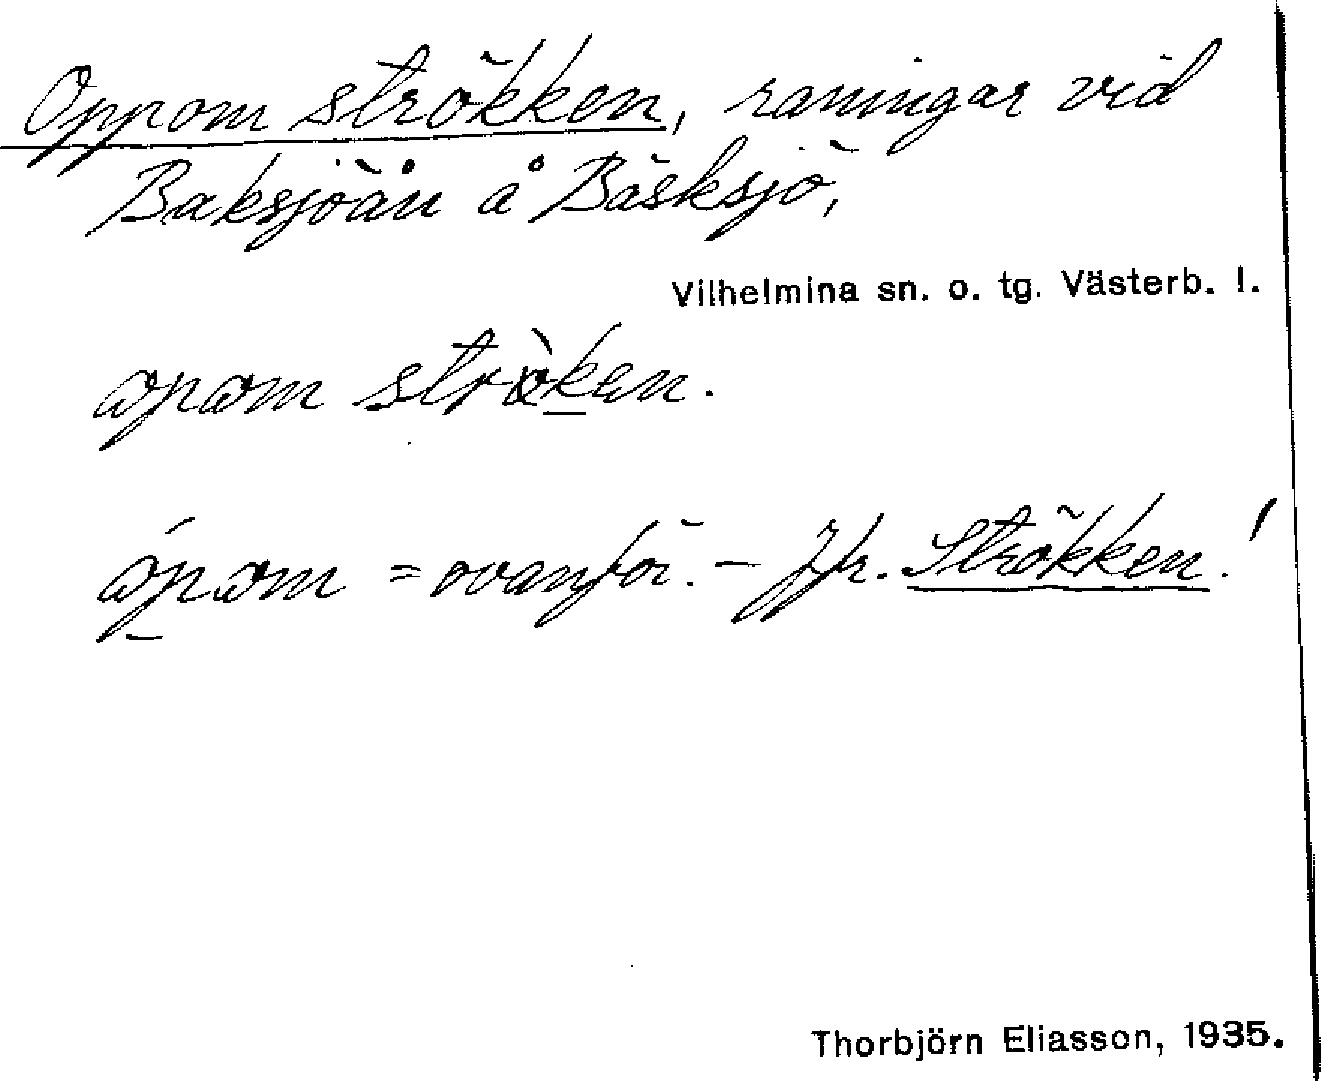 Oppom strökken, raningar vid
Baksjöån å Bäsksjö,
Vilhelmina sn. o. tg. Västerb. l.
opom ströken.
ópom = ovanför. – Jfr. Strökken!
Thorbjörn Eliasson, 1935.